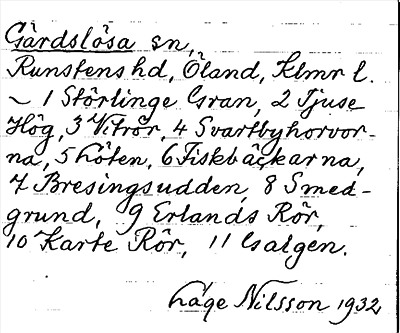 Gärdslösa sn,
Runstens hd, Öland, Klmr l.
~ 1 Störlinge Gran, 2 Tjuse
Hög, 3 Vitrör, 4 Svartbyhorvor-
na, 5 Löten, 6 Fiskbäckarna,
7 Bresingsudden, 8 Smed-
grund, 9 Erlands Rör,
10 Karte Rör, 11 Galgen.
Låge Nilsson 1932